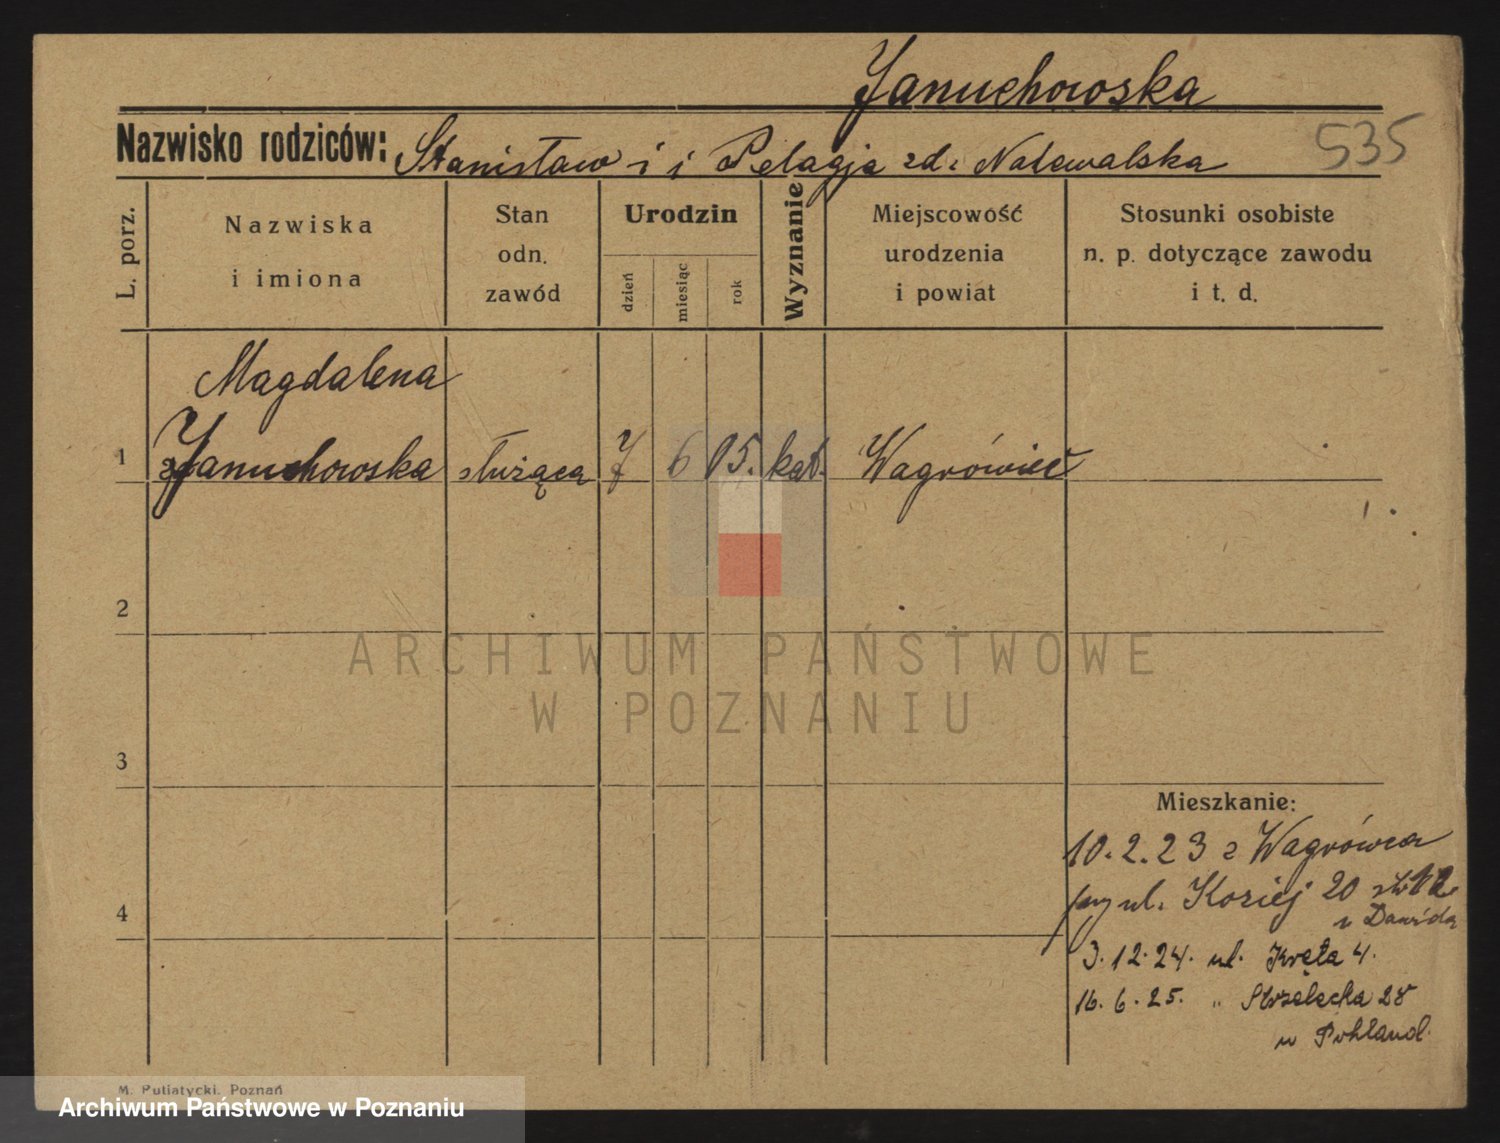 Januchowska
Nazwisko rodziców: Stanisław i i Pelagja zd. Nalewalska
535
L. porz.
Nazwiska
i imiona
Stan
odn.
zawód
Urodzin
dzień
miesiąc
rok
Wyznanie
Miejscowość
urodzenia
i powiat
Stosunki osobiste
n. p. dotyczące zawodu
i t. d.
Magdalena
1 Januchowska służąca 7 6 05. kat. Wagrówiec
2
ARCHIWUM PAŃSTWOWE
W POZNANIU
3
Mieszkanie:
10.2.23 z Wagrówca
ul. Koziej 20
u Dawida
4
3.12.24. ul. Kręta 4.
16.6.25. " Strzelecka 28
u Pohland.
M. Putiatycki, Poznań
Archiwum Państwowe w Poznaniu